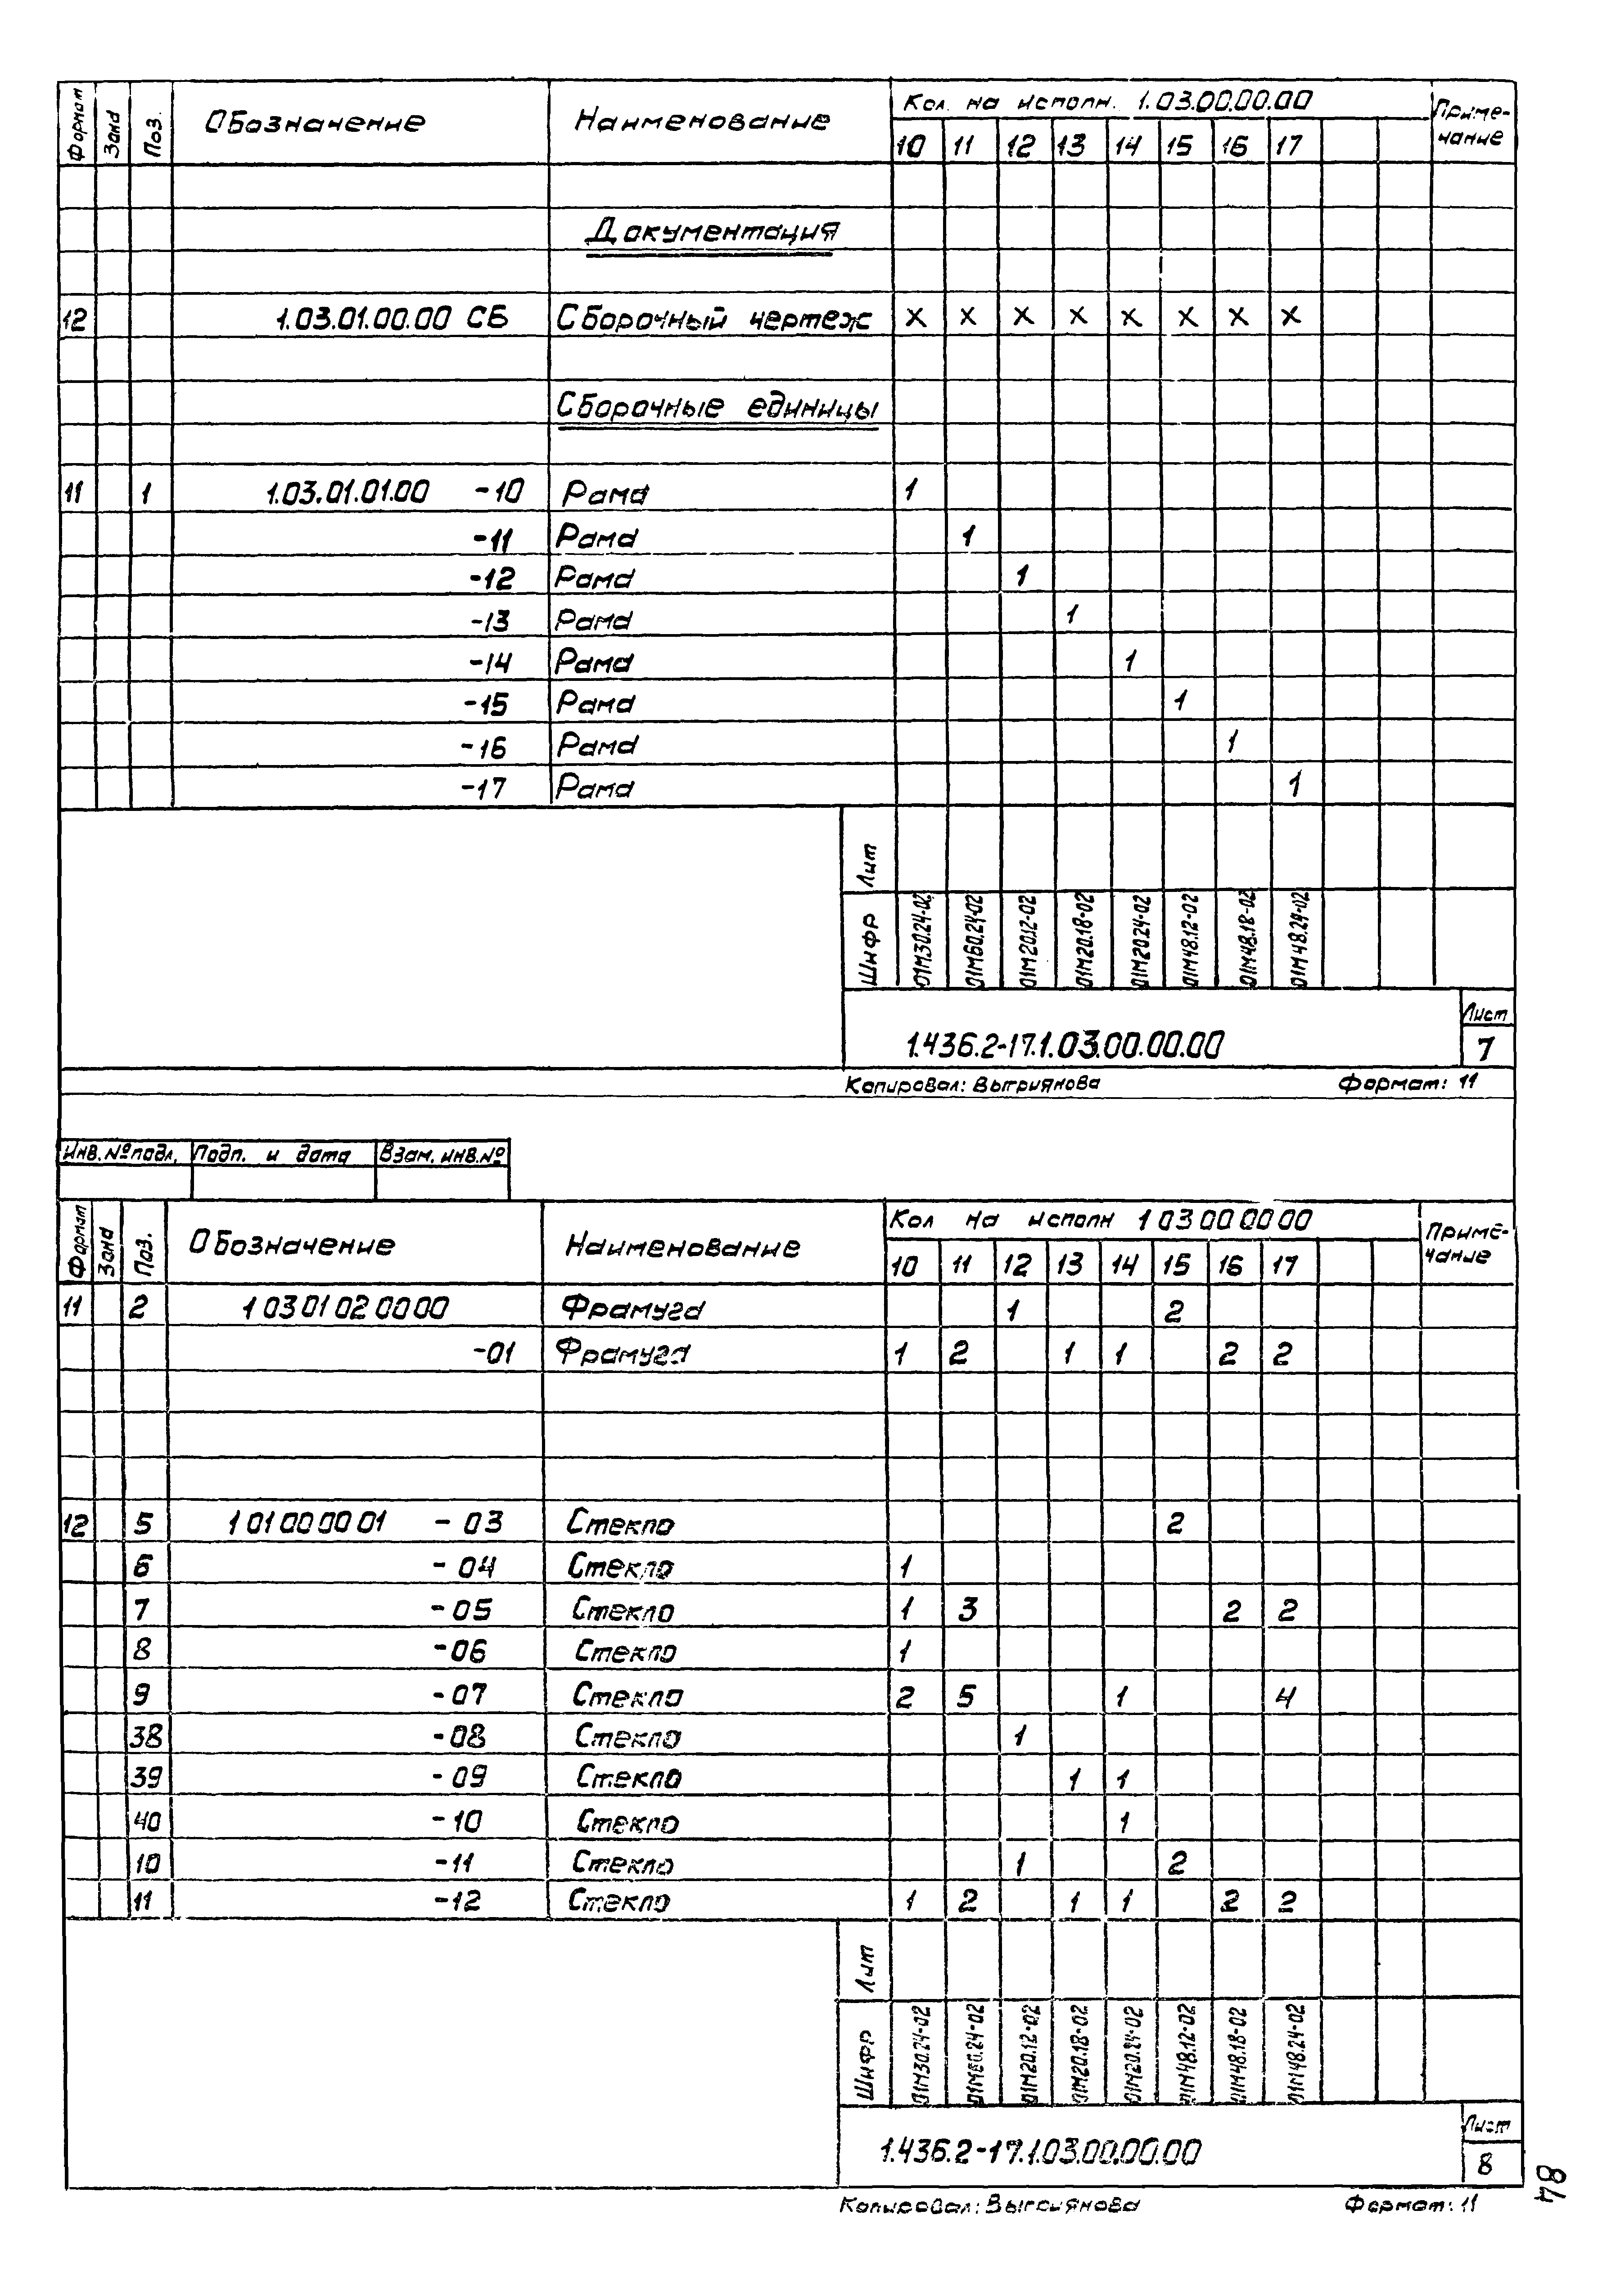 Формат Зона Поз. Обозначение Наименование Кол. на исполн. 1.03.00.00.00 Приме-
10 11 12 13 14 15 16 17 чание
Документация
12 1.03.01.00.00 СБ Сборочный чертеж х х х х х х х х
Сборочные единицы
11 1 1.03.01.01.00 -10 Рама 1
-11 Рама 1
-12 Рама 1
-13 Рама 1
-14 Рама 1
-15 Рама 1
-16 Рама 1
-17 Рама 1
Лит
Шифр 01М30.24-02 01М60.24-02 01М20.12-02 01М20.18-02 01М20.24-02 01М48.12-02 01М48.18-02 01М48.24-02
1.436.2-17.1.03.00.00.00 Лист
7
Копировал: Выгриянова Формат: 11
Инв. № подл. Подп. и дата Взам. инв. №
Формат Зона Поз. Обозначение Наименование Кол на исполн 1 03 00 00 00 Приме-
10 11 12 13 14 15 16 17 чание
11 2 1 03 01 02 00 00 Фрамуга 1 2
-01 Фрамуга 1 2 1 1 2 2
12 5 1 01 00 00 01 - 03 Стекло 2
6 - 04 Стекло 1
7 - 05 Стекло 1 3 2 2
8 - 06 Стекло 1
9 - 07 Стекло 2 5 1 4
38 - 08 Стекло 1
39 - 09 Стекло 1 1
40 - 10 Стекло 1
10 - 11 Стекло 1 2
11 - 12 Стекло 1 2 1 1 2 2
Лит
Шифр 01М30.24-02 01М60.24-02 01М20.12-02 01М20.18-02 01М20.24-02 01М48.12-02 01М48.18-02 01М48.24-02
1.436.2-17.1.03.00.00.00 Лист
8
84
Копировал: Выгриянова Формат: 11